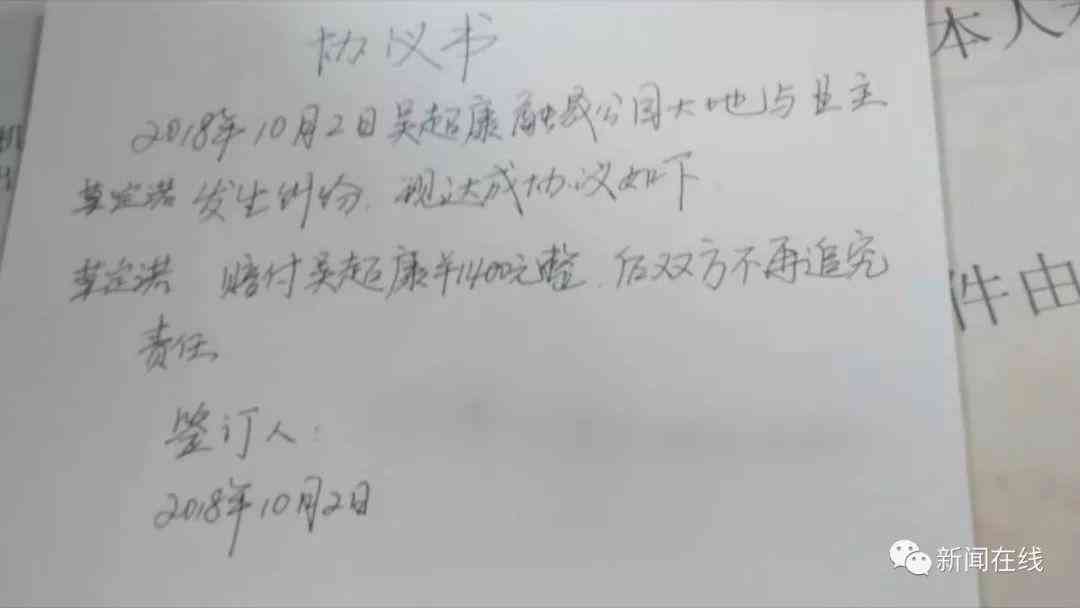 协议书
2018年10月2日吴超康融城公园大地与业主
草定洪 发生纠纷.现达成协议如下
草定洪 赔付吴超康¥1400元整.后双方不再追究
责任
签订人:
2018年10月2日
本人
件由
新闻在线